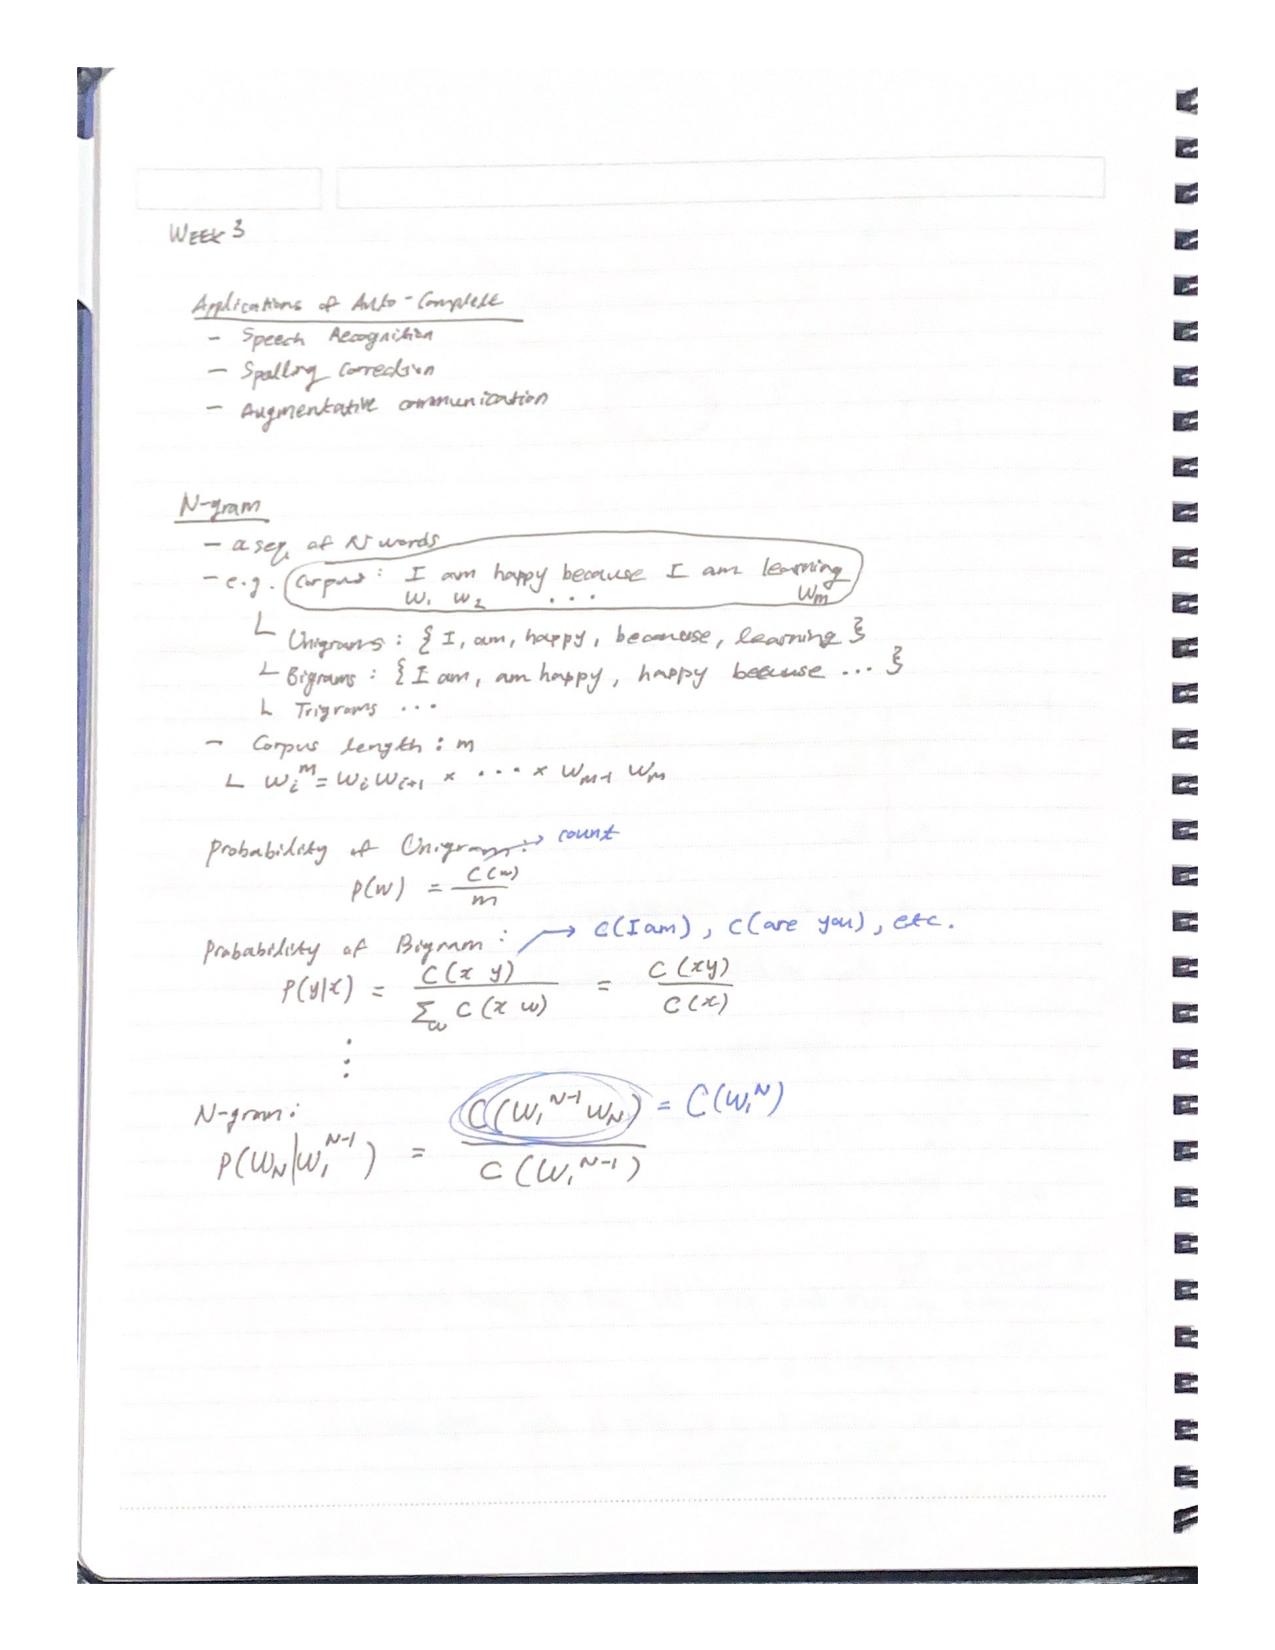 WEEK 3
Applications of Auto-Complete
- Speech Recognition
- Spelling Correction
- Augmentative communication
N-gram
- a seq. of N words
- e.g. Corpus: I am happy because I am learning
w₁ w₂ ... wₘ
└ Unigrams: {I, am, happy, because, learning}
└ Bigrams: {I am, am happy, happy because ... }
└ Trigrams ...
- Corpus length: m
└ wᵢᵐ = wᵢ wᵢ₊₁ × ... × wₘ₋₁ wₘ
Probability of Unigram: → count
P(w) = C(w) / m
Probability of Bigram: → C(I am), C(are you), etc.
P(y|x) = C(x y) / Σ_w C(x w) = C(xy) / C(x)
⋮
N-gram:
P(w_N|w₁^(N-1)) = C(w₁^(N-1) w_N) / C(w₁^(N-1))
= C(w₁^N)